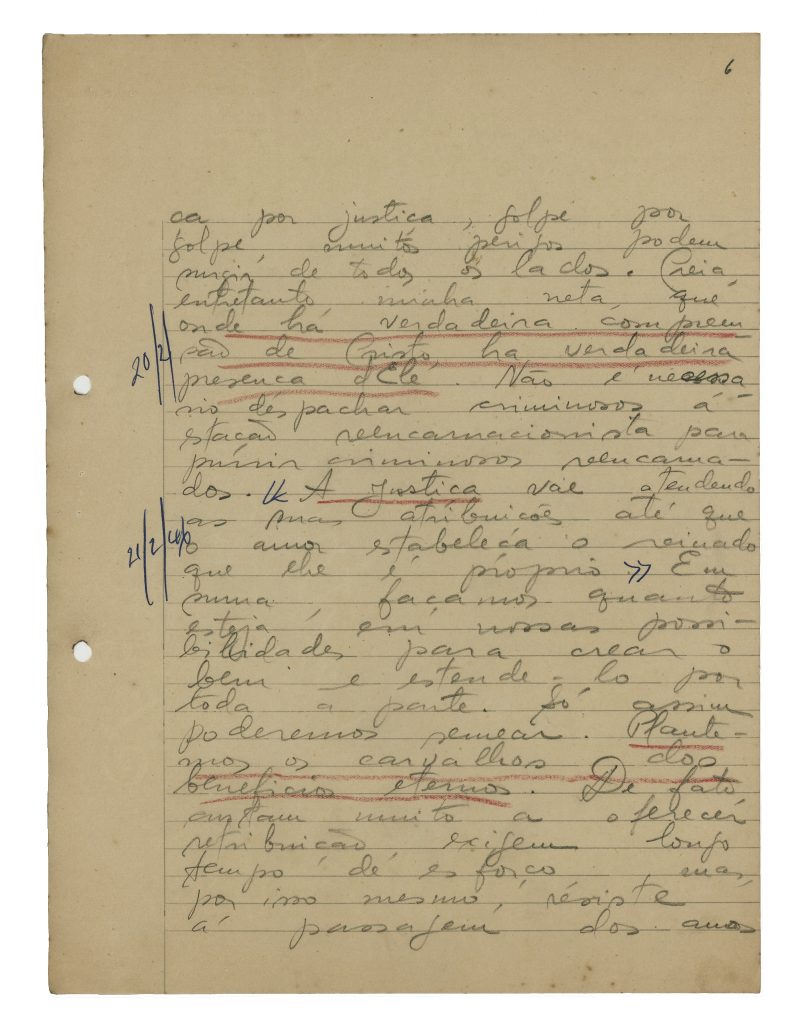 6
ca por justiça, golpe por
golpe, muitos perigos podem
surgir de todos os lados. Creia,
entretanto minha neta, que
onde há verdadeira compreen
são de Cristo, há verdadeira
20/2/
presença d'Ele. Não é necessá
rio despachar criminosos á
estação reencarnacionista para
punir criminosos reencarna-
dos. « A Justiça vae atendendo
as suas atribuicões até que
21/2/
o amor estabeleca o reinado
que lhe é próprio. » Em
suma, façamos quanto
esteja em nossas possi-
bilidades para crear o
bem e estende-lo por
toda a parte. Só assim
poderemos semear. Plante-
mos os carvalhos dos
beneficios eternos. De fato
custam muito a oferecer
retribuicão, exigem longo
tempo de esforço, mas,
por isso mesmo, résiste
á passagem dos anos